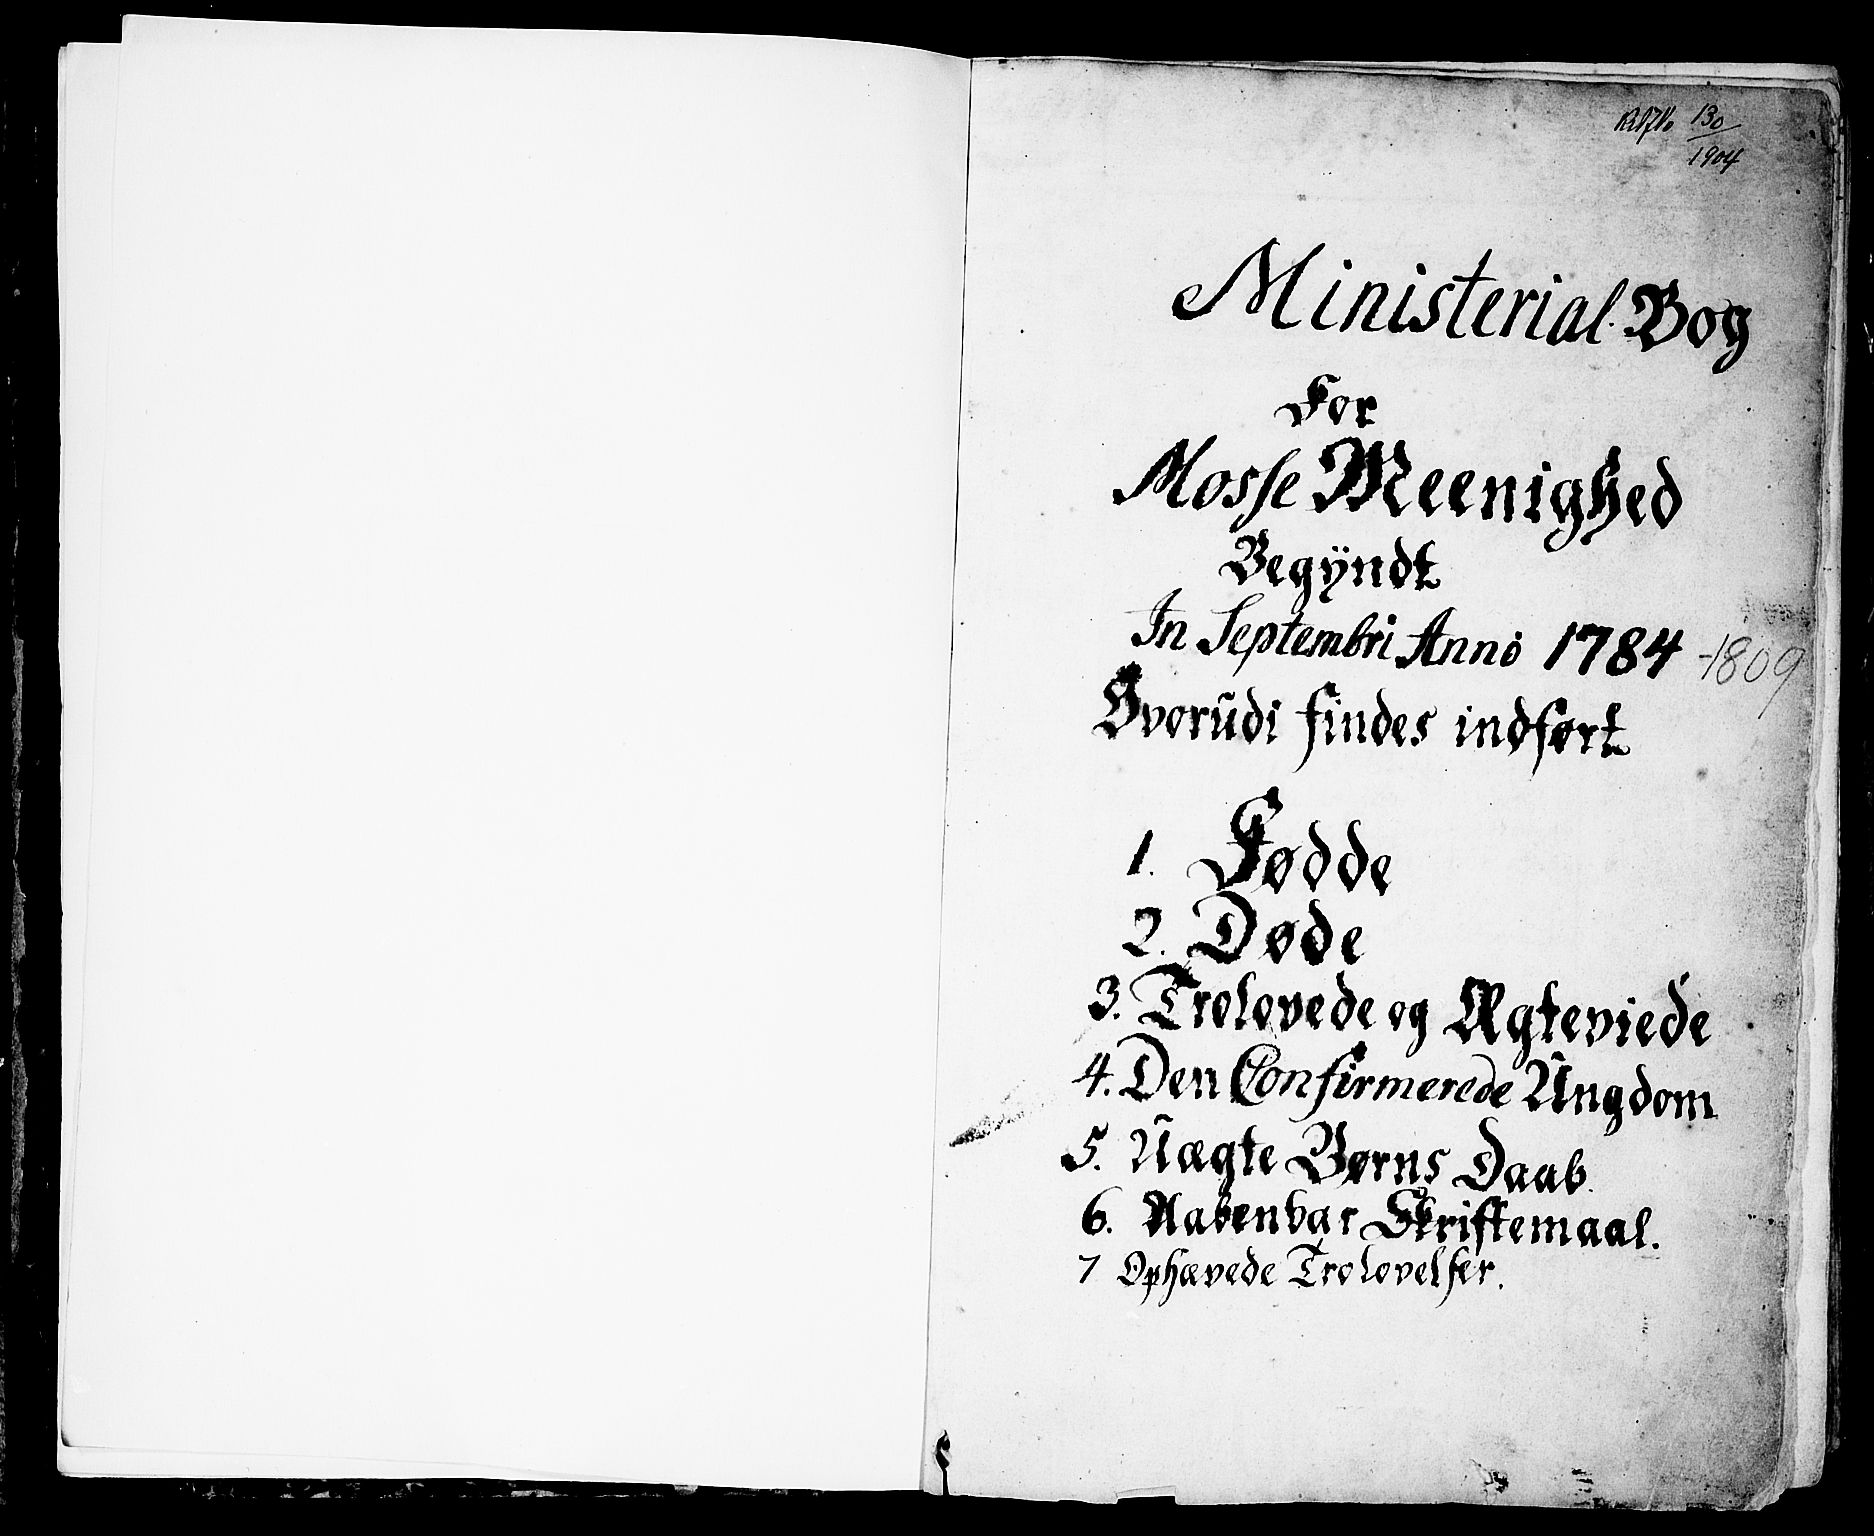 130
1904
Ministerial-Bog
For
Mosse Meenighed
Begÿndt
In Septembri Anno 1784 -1809
Hvorudi findes indført
1. Fødde
2. Døde
3. Trolovede og Ægteviede
4. Den Confirmerede Ungdom
5. Uægte Børns Daab.
6. Aabenbar Skriftemaal.
7 Ophævede Trolovelser.